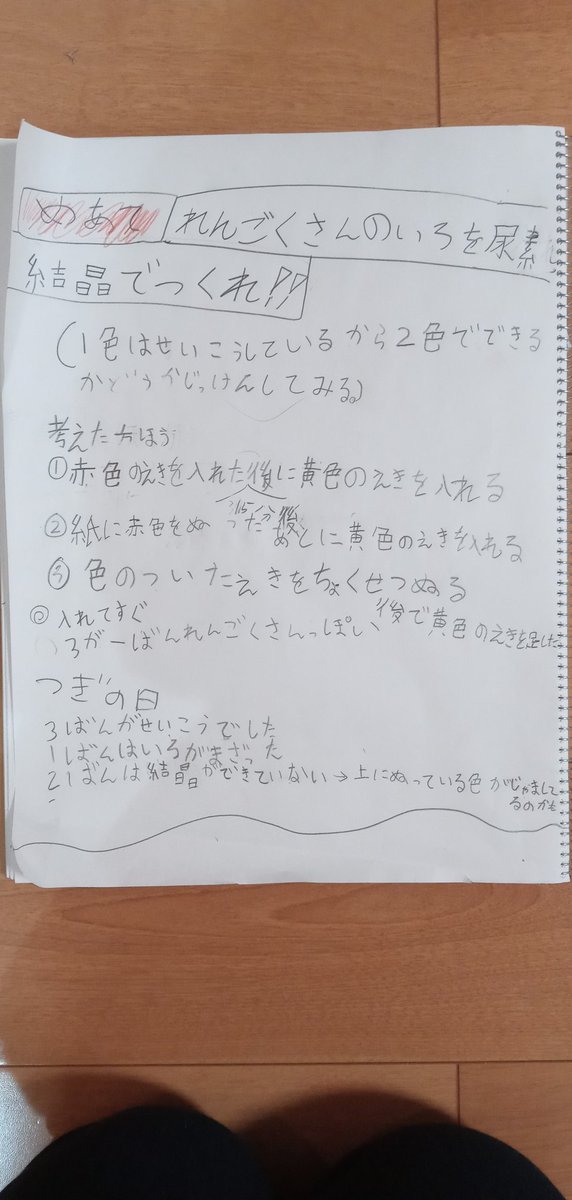 めあて れんごくさんのいろを尿素
結晶でつくれ!!
(1色はせいこうしているから2色でできる
かどうかじっけんしてみる。)
考えた方ほう
①赤色のえきを入れた後に黄色のえきを入れる
②紙に赤色をぬった分後あとに黄色のえきを入れる
③色のついたえきをちょくせつぬる
◎入れてすぐ
3が一ばんれんごくさんっぽい、後で黄色のえきを足した
つぎの日
3ばんがせいこうでした
1ばんはいろがまざった
2ばんは結晶ができていない→上にぬっている色がじゃまして
るのかも